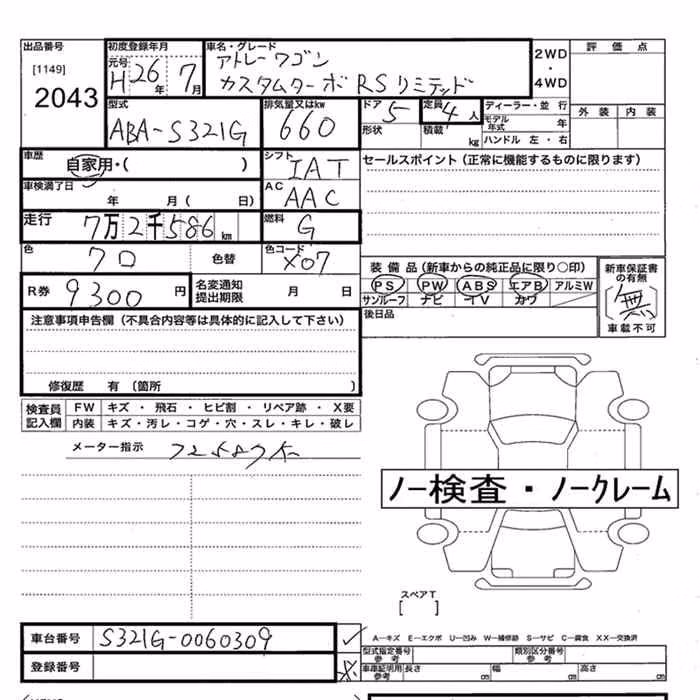 出品番号 初度登録年月 車名・グレード 2WD・4WD 評価点
[1149] 元号 H 26年 7月 アトレーワゴン
2043 カスタムターボRSリミテッド
型式 排気量又はkw ドア 5 定員 4人 ディーラー・並行 外装 内装
ABA-S321G 660 形状 積載 kg モデル年式 年
ハンドル 左・右
車歴 自家用・( ) シフト IAT セールスポイント(正常に機能するものに限ります)
車検満了日 年 月( 日) AC AAC
走行 7万2千586km 燃料 G
色 クロ 色替 色コード X07 装備品(新車からの純正品に限り○印) 新車保証書の有無
R券 9300円 名変通知提出期限 月 日 PS PW ABS エアB アルミW 無
サンルーフ ナビ TV カワ 車載不可
注意事項申告欄(不具合内容等は具体的に記入して下さい) 後日品
修復歴 有〔箇所 〕
検査員記入欄 FW キズ・飛石・ヒビ割・リペア跡・X要
内装 キズ・汚レ・コゲ・穴・スレ・キレ・破レ
メーター指示
ノー検査・ノークレーム
スペアT
[ ]
車台番号 S321G-0060309 A−キズ E−エクボ U−凹み W−補修跡 S−サビ C−腐食 XX−交換済
型式指定番号 参考 類別区分番号 参考
登録番号 車庫証明用 参考 長さ cm 幅 cm 高さ cm